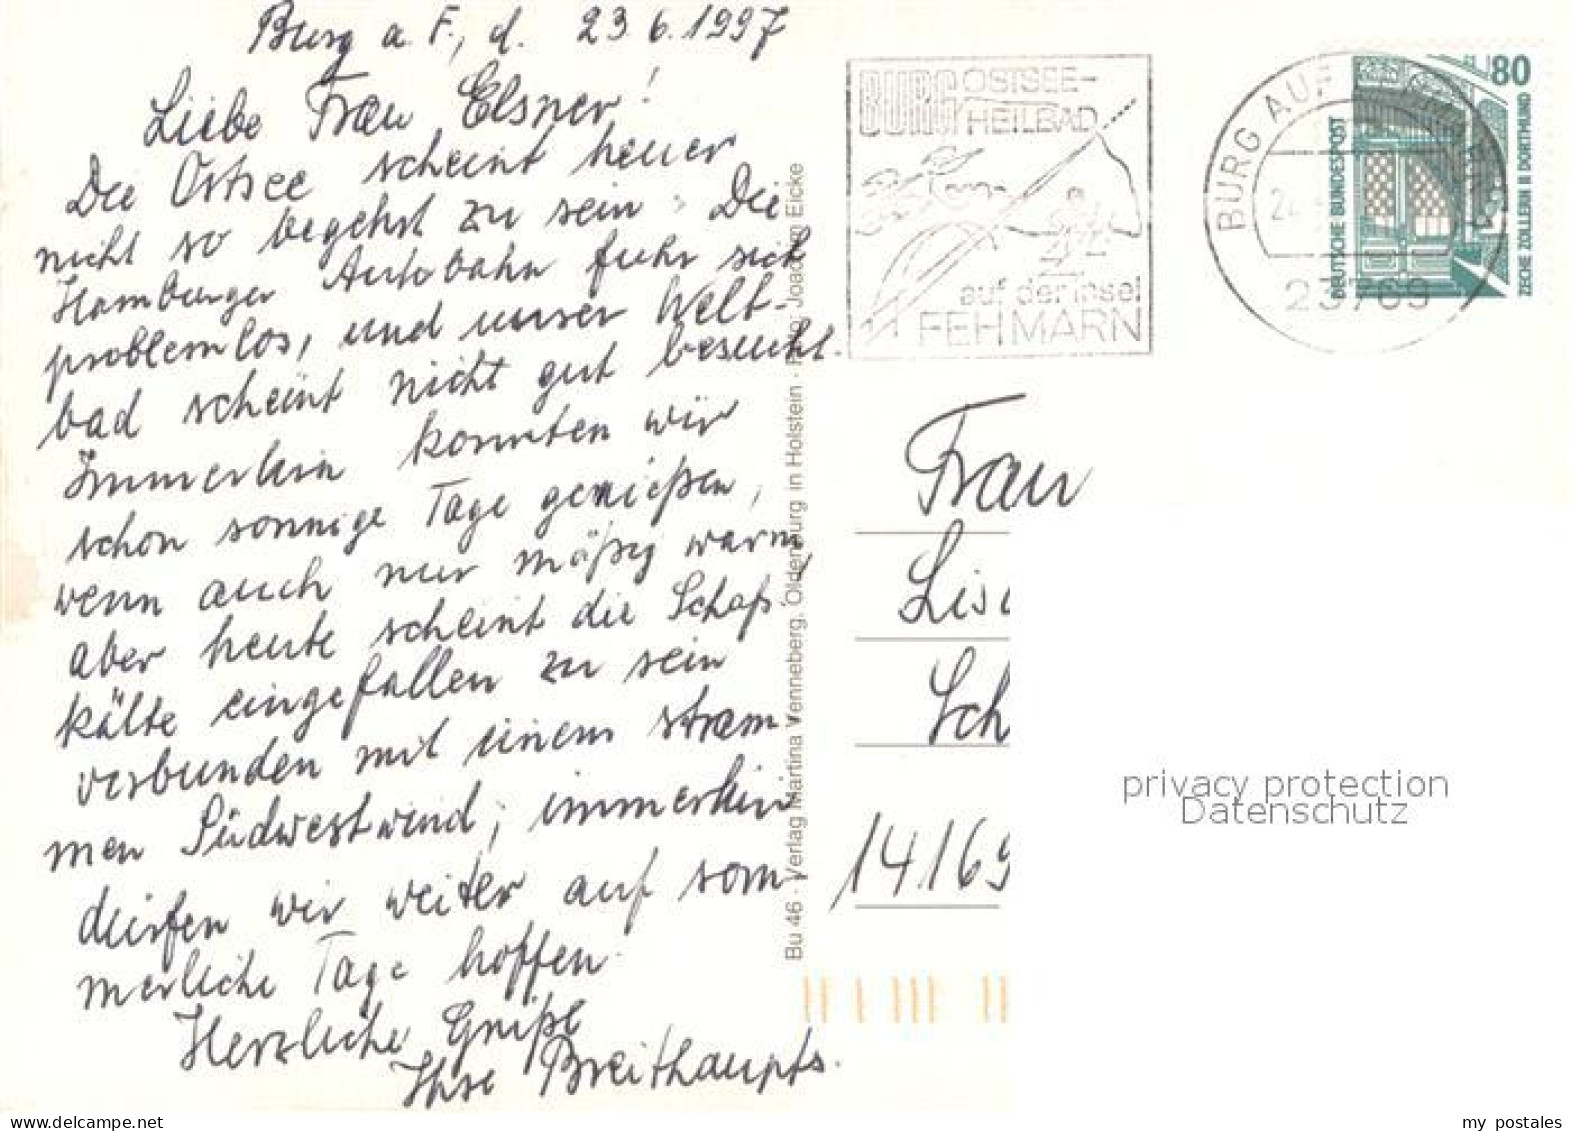 Burg a. F., d. 23.6.1997
Liebe Frau Elsner!
Die Ostsee scheint heuer
nicht so begehrt zu sein. Die
Hamburger Autobahn fuhr sich
problemlos, und unser Welt-
bad scheint nicht gut besucht.
Immerhin konnten wir
schon sonnige Tage genießen,
wenn auch nur mäßig warm,
aber heute scheint die Schafs-
kälte eingefallen zu sein
verbunden mit einem stram-
men Südwestwind; immerhin
dürfen wir weiter auf som-
merliche Tage hoffen.
Herzliche Grüße
Ihre Breithaupts.
Bu 46 · Verlag Martina Venneberg, Oldenburg in Holstein · Foto: Joachim Eicke
BURG OSTSEE-
HEILBAD
auf der Insel
FEHMARN
BURG AUF FEHMARN
23769
80
DEUTSCHE BUNDESPOST
ZECHE ZOLLERN II DORTMUND
Frau
Lis
Sch
14169
privacy protection
Datenschutz
my_postales